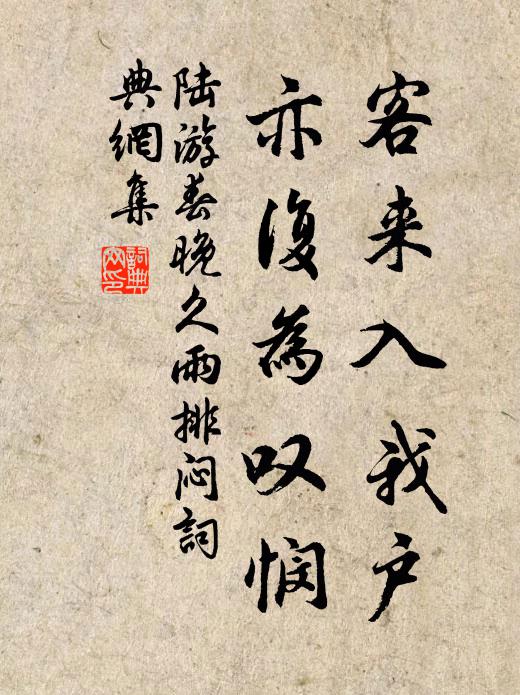 客来入我户
亦復為叹悯
陆游春晚久雨排闷詞
典網集
詞典
网印